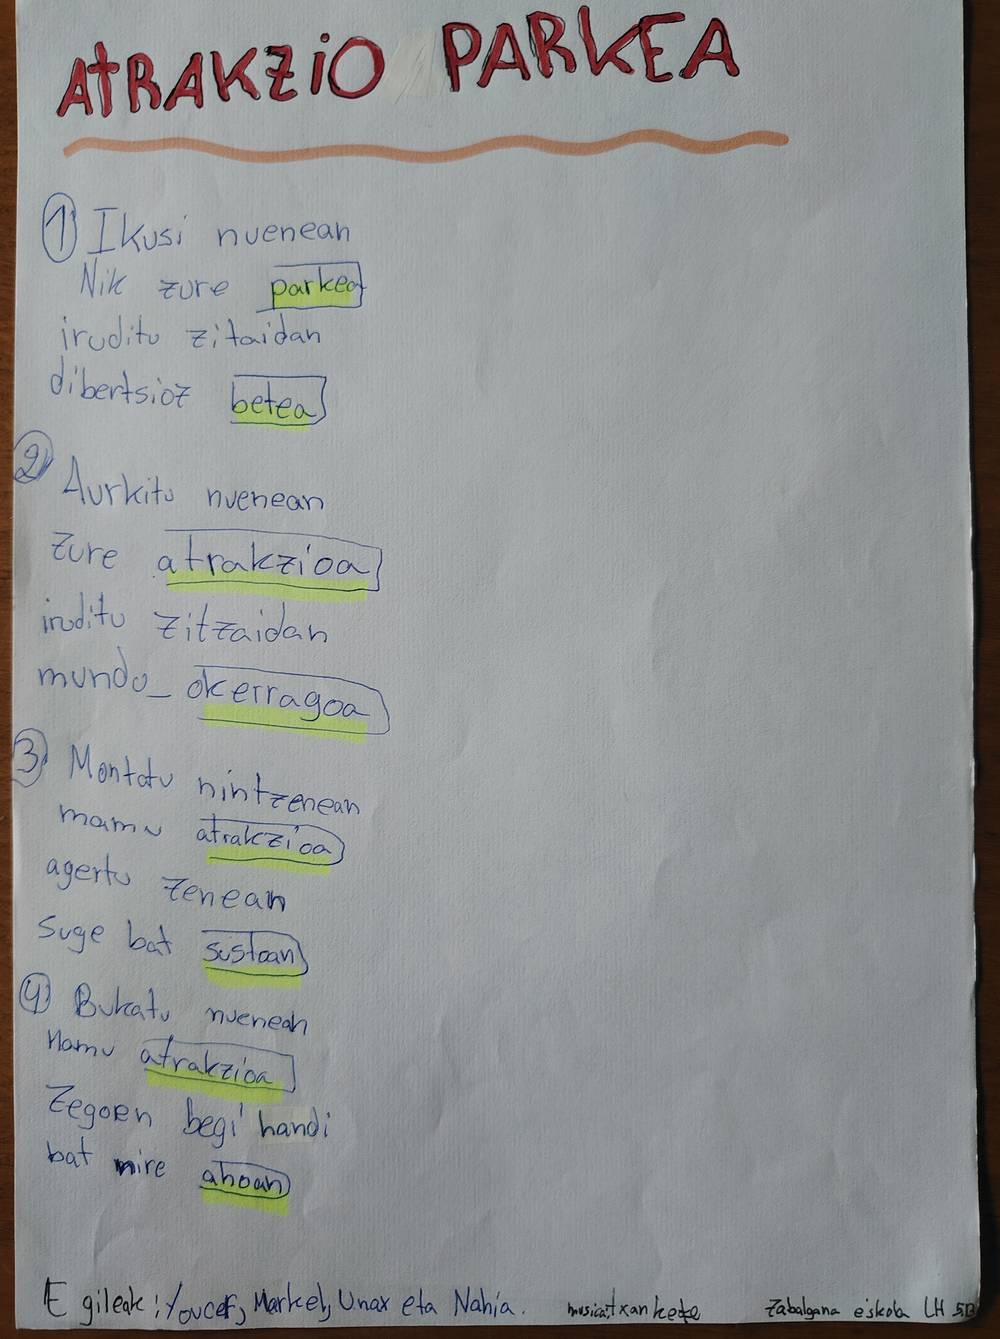 ATRAKZIO PARKEA
1 Ikusi nuenean
Nik zure parkea
iruditu zitaidan
dibertsioz betea
2 Aurkitu nuenean
zure atrakzioa
iruditu zitzaidan
mundu_ okerragoa
3 Montatu nintzenean
mamu atrakzioa
agertu zenean
suge bat sustoan
4 Bukatu nuenean
Mamu atrakzioa
Zegoen begi handi
bat nire ahoan
Egileak: Youcef, Markel, Unax eta Nahia.
musica: txankete
Zabalgana eskola LH 5B